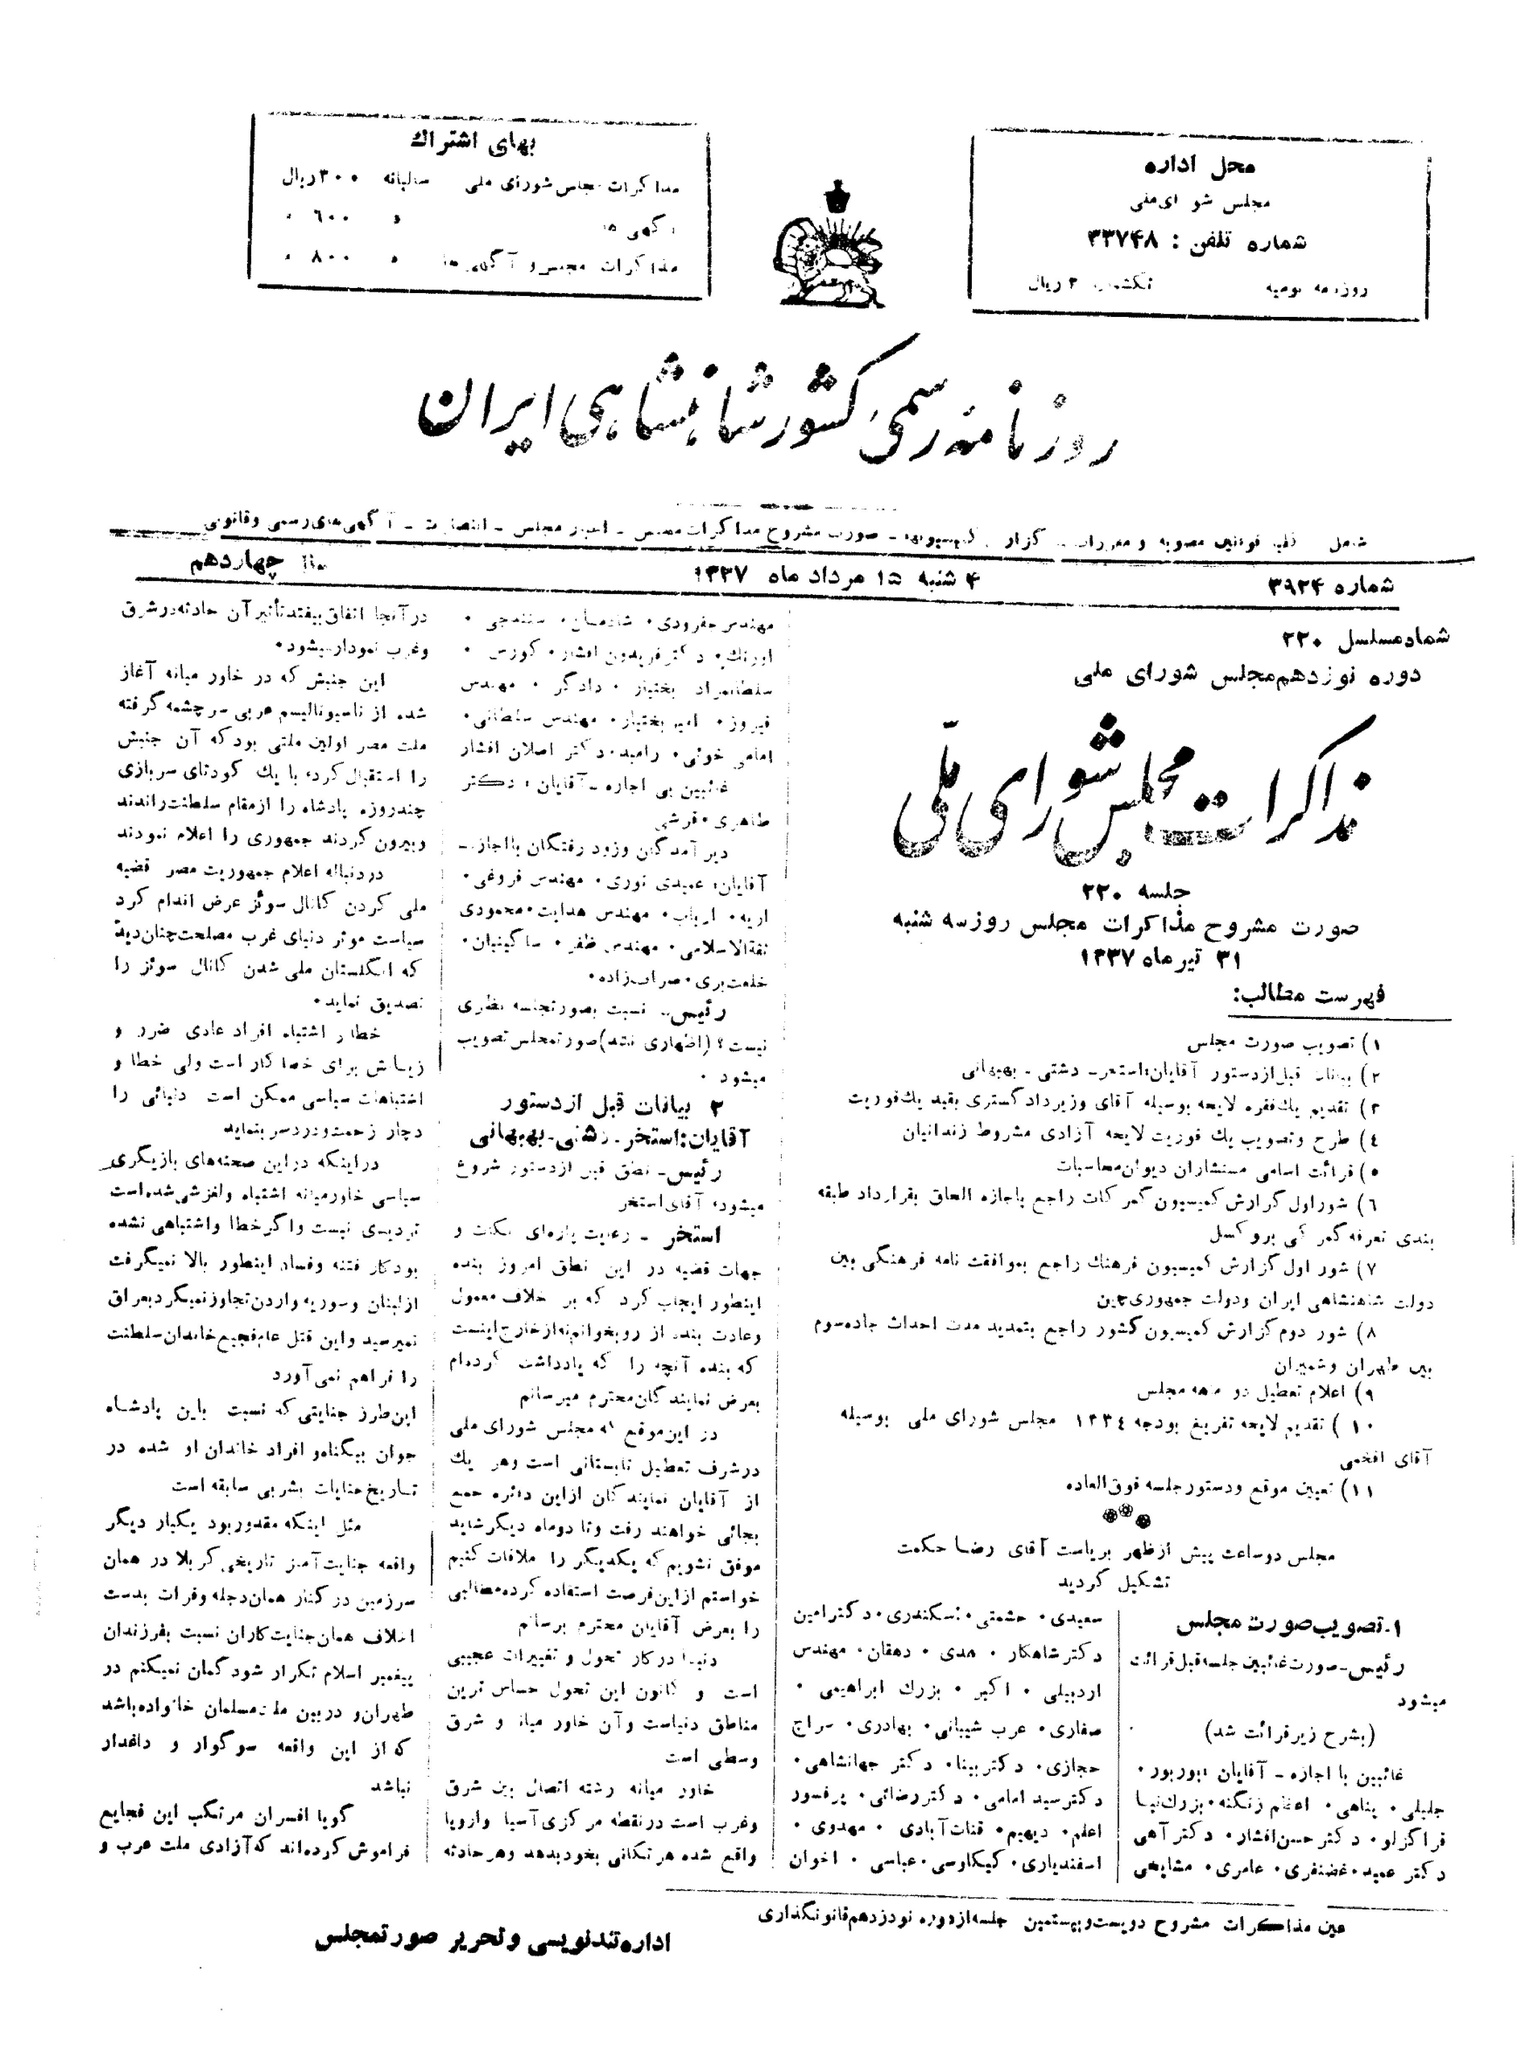 محل اداره
مجلس شورای ملی
شماره تلفن : ۳۳۷۴۸
روزنامه یومیه تکشماره ۲ ریال
بهای اشتراك
مذاکرات مجلس شورای ملی سالیانه ۳۰۰ ریال
آگهی ها » ۶۰۰ »
مذاکرات مجلس و آگهی‌ها » ۸۰۰ »
روزنامه رسمی کشور شاهنشاهی ایران
شامل کلیه قوانین مصوبه و مقررات - گزارش کمیسیونها - صورت مشروح مذاکرات مجلس - اخبار مجلس - انتصابات - آگهی‌های رسمی وقانونی
شماره ۳۹۲۴
۴ شنبه ۱۵ مرداد ماه ۱۳۳۷
سال چهاردهم
شماره مسلسل ۲۲۰
دوره نوزدهم مجلس شورای ملی
مذاکرات مجلس شورای ملی
جلسه ۲۲۰
صورت مشروح مذاکرات مجلس روز سه شنبه
۳۱ تیر ماه ۱۳۳۷
فهرست مطالب:
۱) تصویب صورت مجلس
۲) بیانات قبل از دستور آقایان: استخر - دشتی - بهبهانی
۳) تقدیم یك فقره لایحه بوسیله آقای وزیر دادگستری بقید یك فوریت
۴) طرح و تصویب یك فوریت لایحه آزادی مشروط زندانیان
۵) قرائت اسامی مستشاران دیوان محاسبات
۶) شور اول گزارش کمیسیون گمرکات راجع باجازه الحاق بقرارداد طبقه
بندی تعرفه گمرکی بروکسل
۷) شور اول گزارش کمیسیون فرهنك راجع بموافقت نامه فرهنگی بین
دولت شاهنشاهی ایران ودولت جمهوری چین
۸) شور دوم گزارش کمیسیون کشور راجع بتمدید مدت احداث جاده سوم
بین طهران وشمیران
۹) اعلام تعطیل دو ماهه مجلس
۱۰) تقدیم لایحه تفریغ بودجه ۱۳۳۴ مجلس شورای ملی بوسیله
آقای افخمی
۱۱) تعیین موقع ودستور جلسه فوق العاده
مجلس دو ساعت پیش از ظهر بریاست آقای رضا حکمت
تشکیل گردید
۱ـ تصویب صورت مجلس
رئیس - صورت غائبین جلسه قبل قرائت
میشود
(بشرح زیر قرائت شد)
غائبین با اجازه - آقایان : پوربور.
جلیلی . پناهی . اعظم زنگنه . بزرك نیا
قراگزلو . دکتر حسن افشار . دکتر آهی
دکتر عمید . غضنفری . عامری . مشایخی
سعیدی . حشمتی . اسکندری . دکتر امین
دکتر شاهکار . هدی . دهقان . مهندس
اردبیلی . اکبر . بزرك ابراهیمی .
صفاری . عرب شیبانی . بهادری . سراج
حجازی . دکتر بینا . دکتر جهانشاهی .
دکتر سید امامی . دکتر رضائی . پرفسور
اعلم . دیهیم . قنات آبادی . مهدوی .
اسفندیاری . کیکاوسی . عباسی . اخوان
مهندس جفرودی . شادمان . سنندجی .
اورنك . دکتر فریدون افشار . کورس .
سلطانمراد بختیار . دادگر . مهندس
فیروز . امیر بختیار . مهندس سلطانی .
امامی خوئی . رامبد . دکتر اصلان افشار
غائبین بی اجازه - آقایان : دکتر
طاهری . قرشی
دیر آمدگان وزود رفتگان با اجازه -
آقایان : عمیدی نوری . مهندس فروغی .
اریه . ارباب . مهندس هدایت . محمودی
ثقةالاسلامی . مهندس ظفر . ساگینیان .
خلعتبری . صراف زاده .
رئیس - نسبت بصورتجلسه نظری
نیست؟ (اظهاری نشد) صورتمجلس تصویب
میشود .
۲ بیانات قبل از دستور
آقایان: استخر - دشتی - بهبهانی
رئیس - نطق قبل از دستور شروع
میشود، آقای استخر
استخر - رعایت پاره‌ای نکات و
جهات قضیه در این نطق امروز بنده
اینطور ایجاب کرد که بر خلاف معمول
وعادت بنده از رو بخوانم نه از خارج اینست
که بنده آنچه را که یادداشت کرده‌ام
بعرض نمایندگان محترم میرسانم
در این موقع که مجلس شورای ملی
در شرف تعطیل تابستانی است وهر یك
از آقایان نمایندگان از این دائره جمع
بجائی خواهند رفت و تا دو ماه دیگر شاید
موفق نشویم که یکدیگر را ملاقات کنیم
خواستم از این فرصت استفاده کرده مطالبی
را بعرض آقایان محترم برسانم
دنیا در کار تحول و تغییرات عجیبی
است و کانون این تحول حساس ترین
مناطق دنیاست وآن خاور میانه و شرق
وسطی است
خاور میانه رشته اتصال بین شرق
وغرب است در نقطه مرکزی آسیا واروپا
واقع شده هر تکانی بخود بدهد وهر حادثه
در آنجا اتفاق بیفتد تأثیر آن حادثه در شرق
وغرب نمودار میشود .
این جنبش که در خاور میانه آغاز
شده از ناسیونالیسم عربی سرچشمه گرفته
ملت مصر اولین ملتی بود که آن جنبش
را استقبال کرد، با یك کودتای سربازی
چند روزه پادشاه را از مقام سلطنت راندند
وبیرون کردند جمهوری را اعلام نمودند
در دنباله اعلام جمهوریت مصر قضیه
ملی کردن کانال سوئز عرض اندام کرد
سیاست موثر دنیای غرب مصلحت چنان دید
که انگلستان ملی شدن کانال سوئز را
تصدیق نماید .
خطا و اشتباه افراد عادی ضرر و
زیانش برای خطا کار است ولی خطا و
اشتباهات سیاسی ممکن است دنیائی را
دچار زحمت ودردسر بنماید
در اینکه در این صحنه‌های بازیگری
سیاسی خاورمیانه اشتباه ولغزشی شده است
تردیدی نیست واگر خطا واشتباهی نشده
بود کار فتنه وفساد اینطور بالا نمیگرفت
از لبنان وسوریه واردن تجاوز نمیکرد بعراق
نمیرسید واین قتل عام فجیع خاندان سلطنت
را فراهم نمی آورد
این طرز جنایتی که نسبت باین پادشاه
جوان بیگناه و افراد خاندان او شده در
تاریخ جنایات بشر بی سابقه است
مثل اینکه مقدور بود یکبار دیگر
واقعه جنایت آمیز تاریخی کربلا در همان
سرزمین در کنار همان دجله وفرات بدست
اخلاف همان جنایت کاران نسبت بفرزندان
پیغمبر اسلام تکرار شود گمان نمیکنم در
طهران و در بین ملت مسلمان خانواده باشد
که از این واقعه سوگوار و داغدار
نباشد
گویا افسران مرتکب این فجایع
فراموش کرده‌اند که آزادی ملت عرب و
عین مذاکرات مشروح دویست وبیستمین جلسه از دوره نوزدهم قانونگذاری
اداره تندنویسی و تحریر صورتمجلس